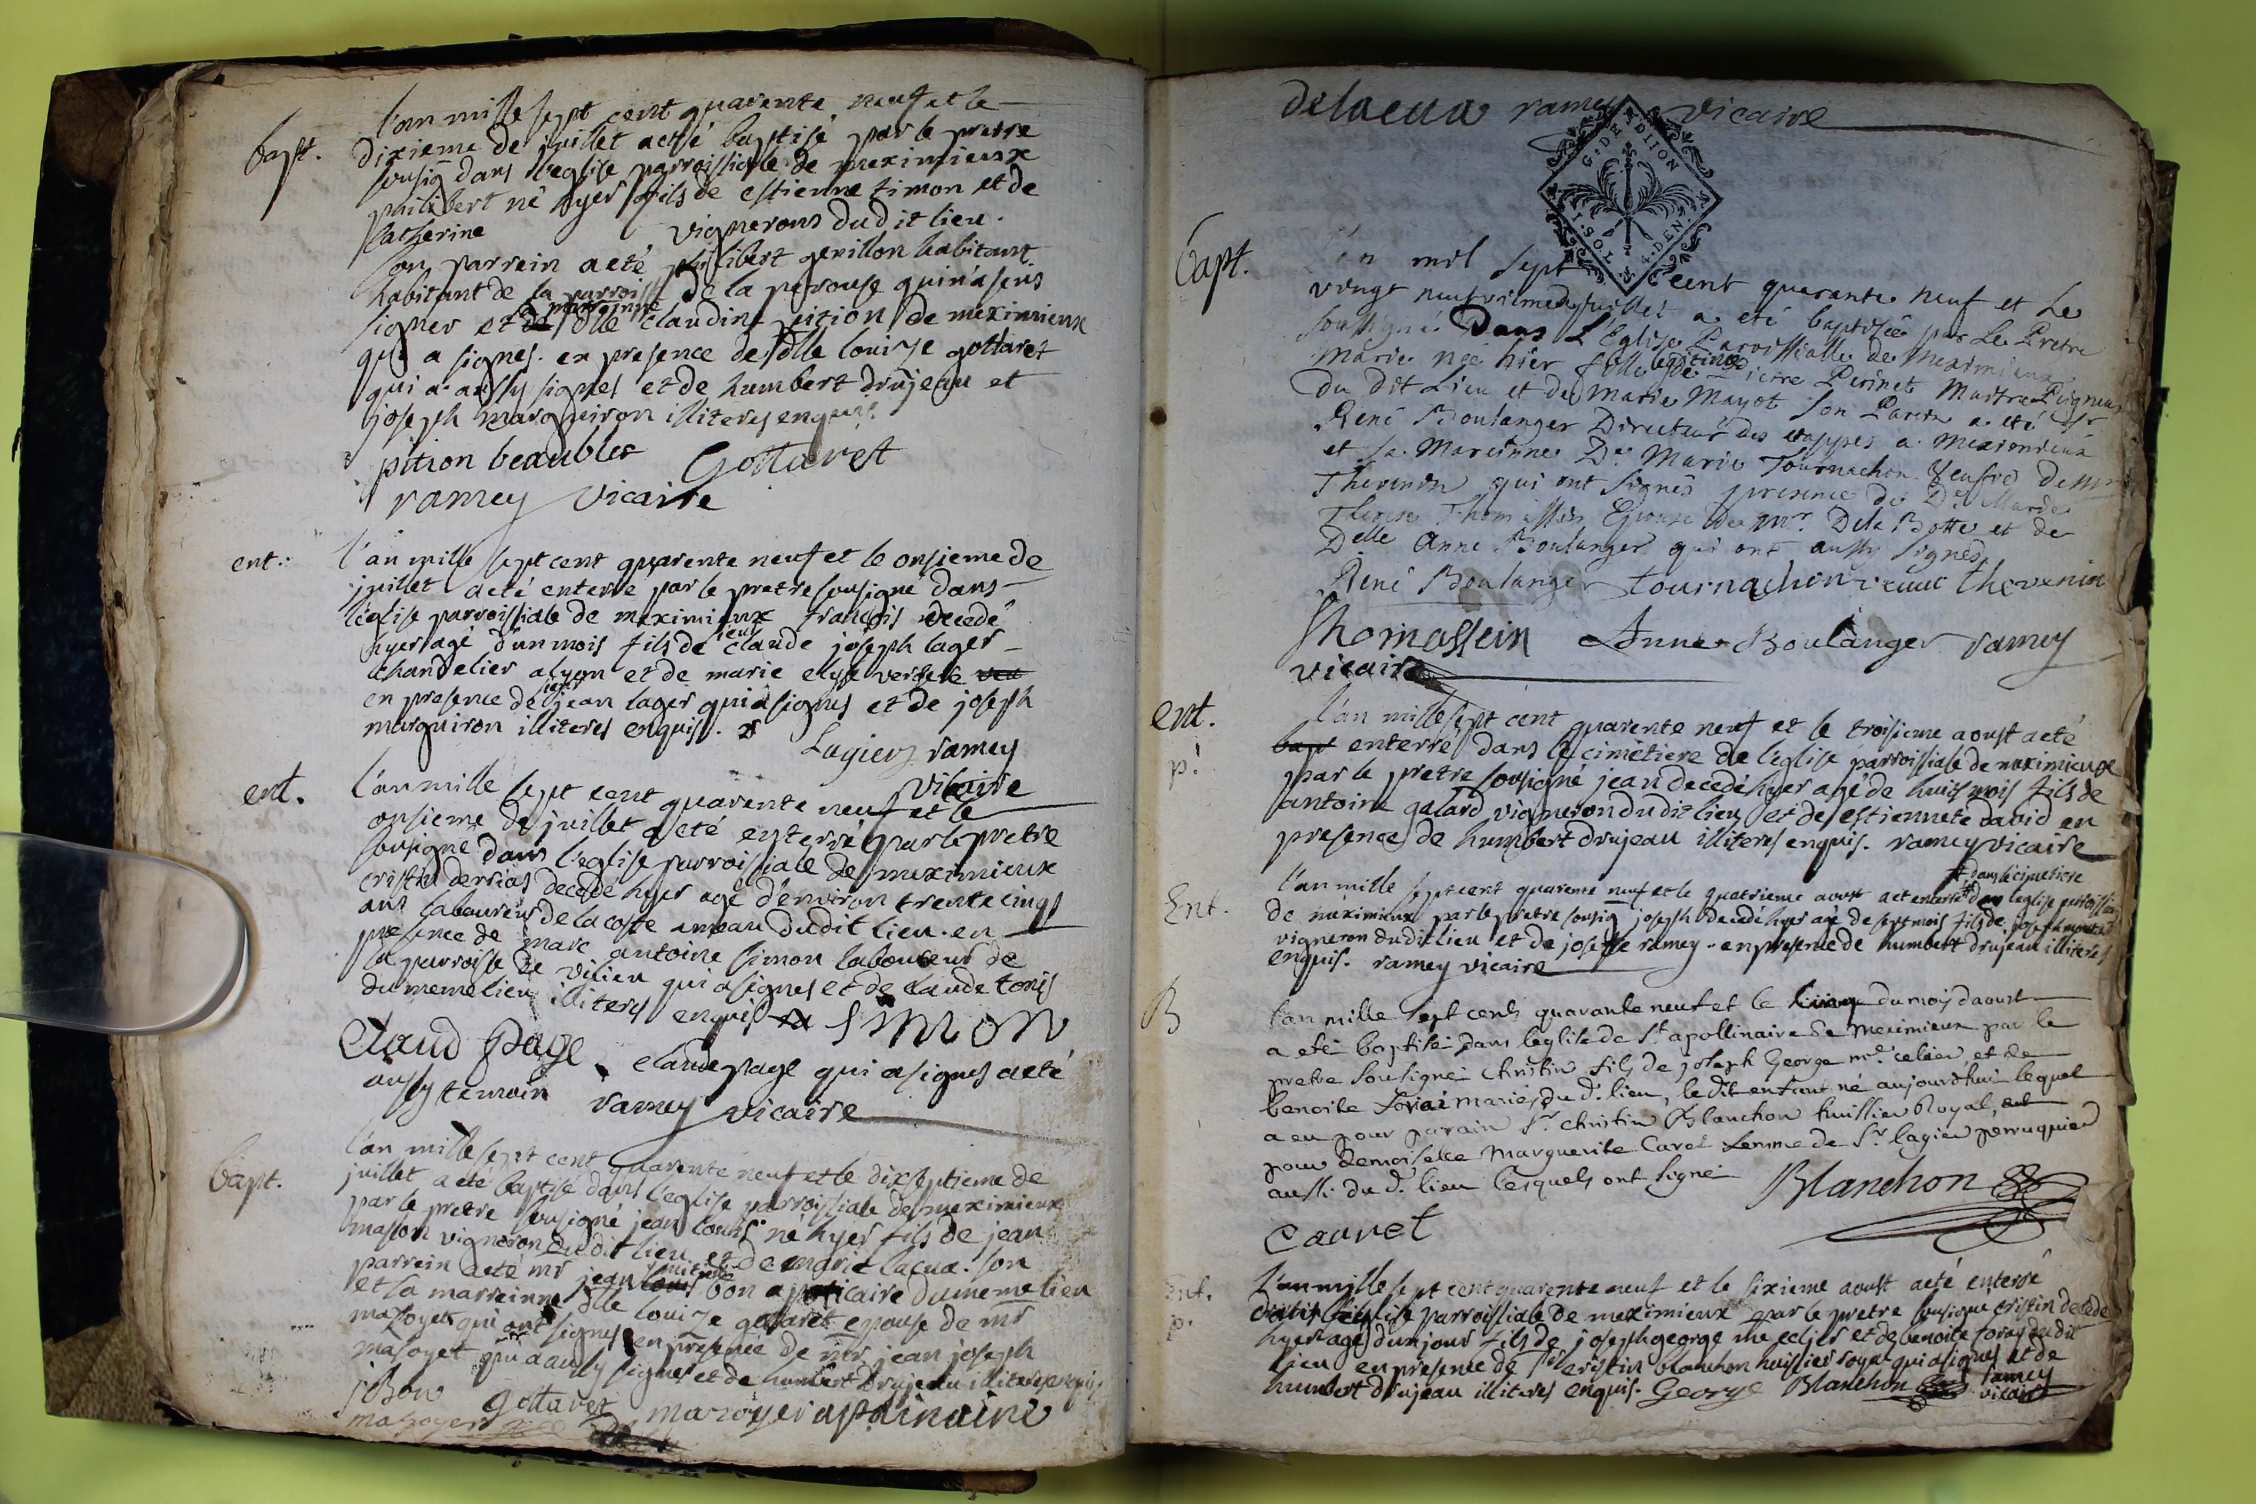 bapt.
l'an mille sept cent quarente neuf et le
dixieme de juillet a eté baptisé par le pretre
sousig dans l'eglise parroissiale de meximieux
philibert né hyer fils de estienne simon et de
catherine vignerons dudit lieu.
son parrein a eté philibert gevillon habitant
habitant de la parroisse de la perouse qui n'a seus
signer et la marreinne dlle claudine pition de meximieux
qui a signes. en presence de dlle louise gottaret
qui a aussy signes et de humbert drujeau et
joseph marguiron illiteres enquis.
pition beaubler Gottaret
ramey vicaire
ent.
l'an mille sept cent quarente neuf et le onsieme de
juillet a eté enterre par le pretre sousigne dans
l'eglise parroissiale de meximieux francois decedé
hyer agé d'un mois fils de sieur claude joseph lager
chandelier a lyon et de marie elyse versele
en presence de sieur jean lager qui a signes et de joseph
marguiron illiteres enquis.
Lagier ramey
vicaire
ent.
l'an mille sept cent quarente neuf et le
onsieme de juillet a eté enterré par le pretre
sousigné dans l'eglise parroissiale de meximieux
cristin derrias decedé hyer agé d'environ trente cinqs
ans laboureur de la coste ameau dudit lieu. en
presence de marc antoine simon laboureur de
la parroisse de vilieu qui a signes et de claude tonis
du meme lieu illiteres enquis
SIMON
Claud page claude page qui a signes a eté
aussy temoin ramey vicaire
bapt.
l'an mille sept cent quarente neuf et le dixseptieme de
juillet a eté baptisé dans l'eglise parroissiale de meximieux
par le pretre sousigné jean louis né hyer fils de jean
masson vigneron dudit lieu et de marie lacua. son
parrein a eté mr jean bon apoticaire du meme lieu
et la marreinne dlle louise gotaret epouse de mr
masoyer qui ont signes en presence de mr jean joseph
masoyer qui a aussy signes et de humbert drujeau illiteres enquis
j Bon gottaret mazoyer appolinaire
mazoyer
delacua ramey vicaire
G. DE DIION
1. SOL. 4. DEN.
bapt.
L'an mil sept cent quarante neuf et Le
vingt neufvieme de Juillet a eté baptisée par Le Pretre
soussigné Dans L'Eglise Paroissialle de Meximieux
Marie née hier fille legitime de Pierre Perinet Maitre Peigneur
Du Dit Lieu et de Marie Mayot son Parein a eté Sr
René Boulanger Directeur des etappes a Meximieux
et sa Mareinne De Marie Tournachon Veufve de Mr
Thevenin qui ont signés presence de De Marie
Therese Thomassein Epouse de Mr. Dela Botte et de
Delle Anne Boulanger qui ont aussy signés
René Boulanger tournachon veuve thevenin
Thomassein Anne Boulanger ramey
vicaire
ent.
p.
l'an mille sept cent quarente neuf et le troisieme aoust a eté
bapt enterré dans le cimetiere de l'eglise parroissiale de meximieux
par le pretre sousigné jean decedé hyer agé de huit mois fils de
antoine galard vigneron dudit lieu et de estiennete david en
presence de humbert drujeau illiteres enquis. ramey vicaire
Ent.
l'an mille sept cent quarente neuf et le quatrieme aoust a eté enterré dans le cimetiere de l'eglise parroissiale
de meximieux par le pretre sousig joseph decedé hyer agé de sept mois fils de joseph
vigneron dudit lieu et de josepte ramey. en presence de humbert drujeau illiteres
enquis. ramey vicaire
B
l'an mille sept cents quarante neuf et le cinq du mois daoust
a eté baptisé dans leglise de St. apollinaire de Meximieux par le
pretre sousigné christin fils de joseph George me. celier et de
benoite Forai mariés du d. lieu, ledit enfant né aujourd'hui lequel
a eu pour parain Sr. christin Blanchon huissier Royal, et
pour Demoiselle Marguerite Cavet femme de Sr. lagier perruquier
aussi du d. lieu lesquels ont signé Blanchon
cauvet
ent.
p.
L'an mille sept cent quarente neuf et le sixieme aoust a eté enterré
dans l'eglise parroissiale de meximieux par le pretre sousigne cristin decedé
hyer agé d'un jour fils de joseph george me celier et de benoite foray dudit
lieu en presence de sr cristin blanchon huissier royal qui a signes et de
humbert drujeau illiteres enquis. George Blanchon ramey
vicaire